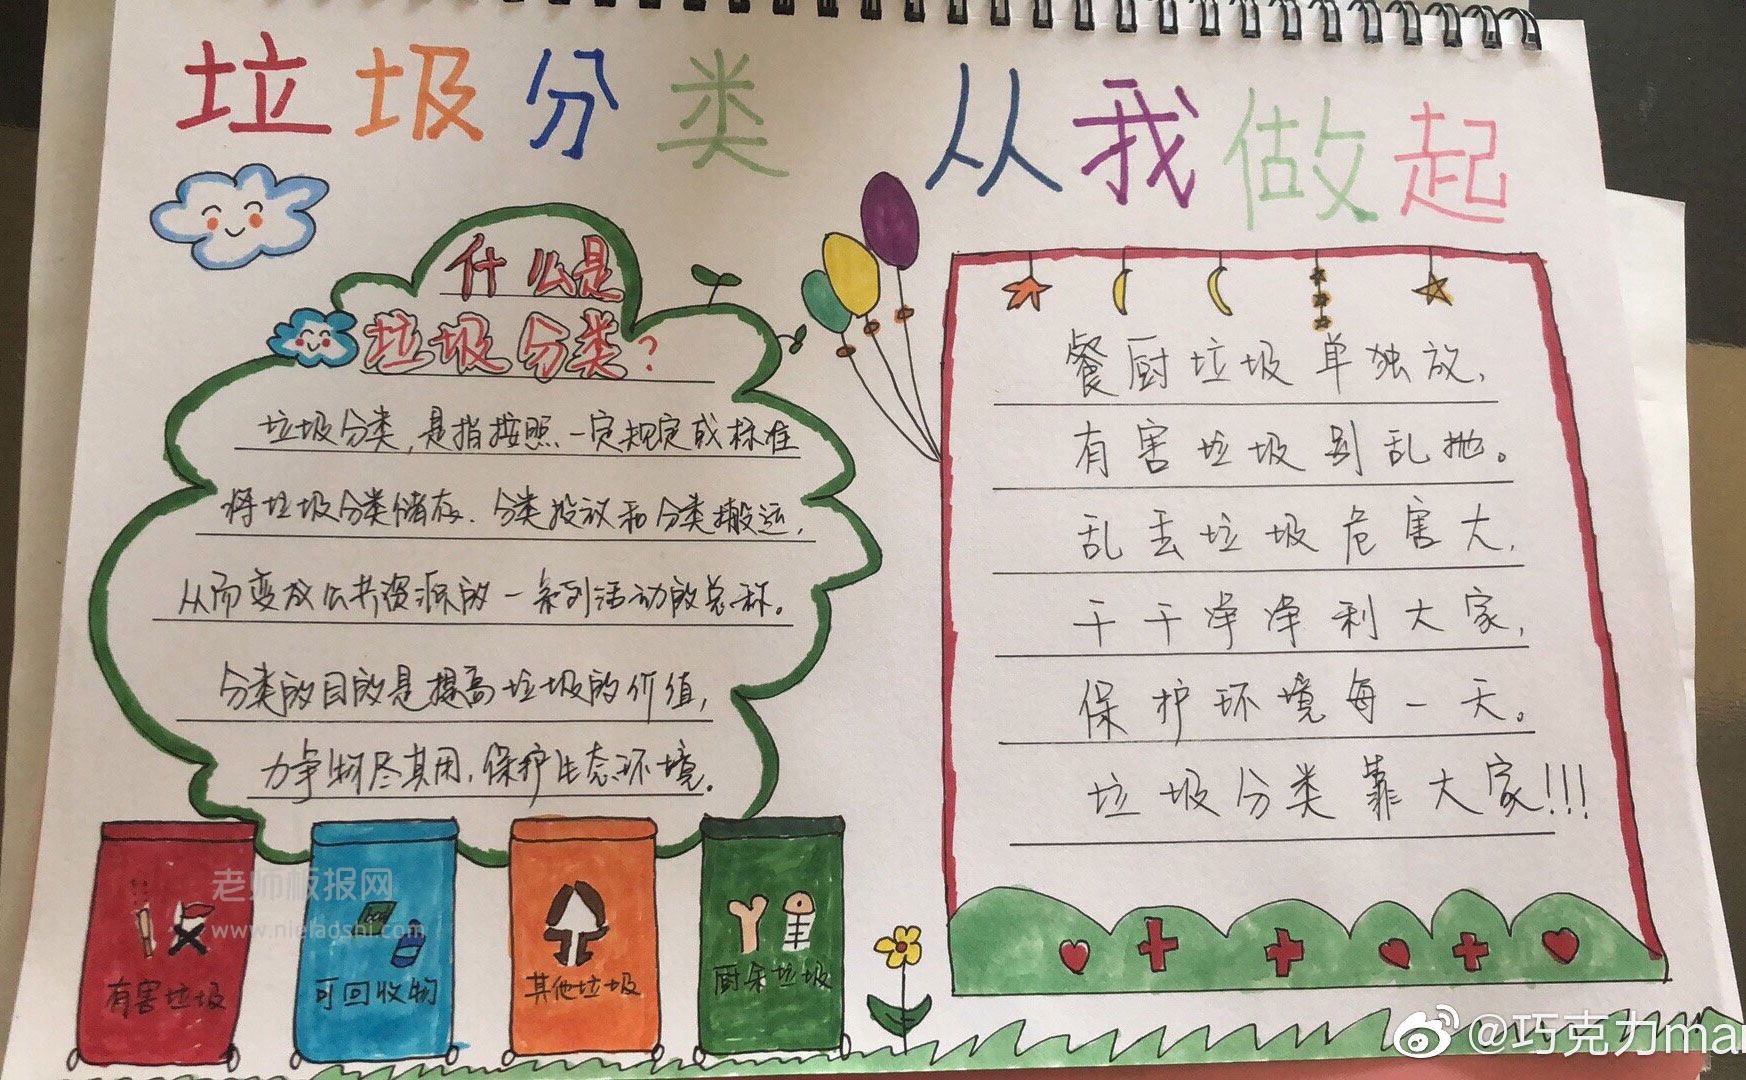 垃圾分类 从我做起
什么是
垃圾分类?
垃圾分类,是指按照一定规定或标准
将垃圾分类储存、分类投放和分类搬运,
从而变成公共资源的一系列活动的总称。
分类的目的是提高垃圾的价值,
力争物尽其用,保护生态环境。
餐厨垃圾单独放,
有害垃圾别乱抛。
乱丢垃圾危害大,
干干净净利大家,
保护环境每一天。
垃圾分类靠大家!!!
有害垃圾
可回收物
其他垃圾
厨余垃圾
老师板报网
www.nieladshi.com
@巧克力mar